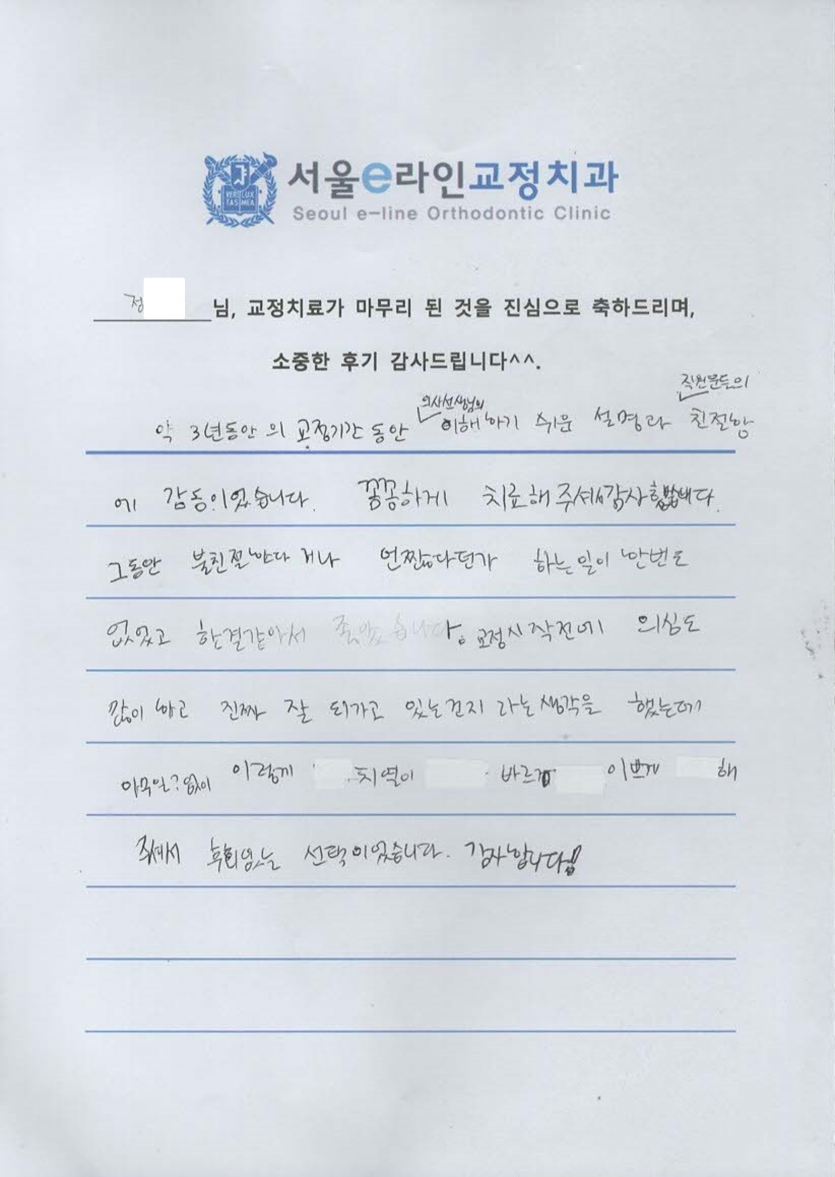 서울e라인교정치과
Seoul e-line Orthodontic Clinic
VERI LUX TAS MEA
정 님, 교정치료가 마무리 된 것을 진심으로 축하드리며,
소중한 후기 감사드립니다^^.
의사선생님의 직원분들의
약 3년동안 의 교정기간 동안 이해하기 쉬운 설명과 친절함
에 감동이었습니다. 꼼꼼하게 치료해 주셔서 감사합니다.
그동안 불친절하다 거나 언짢다던가 하는일이 한번도
없었고 한결같아서 좋았습니다. 교정시작전에 의심도
많이 하고 진짜 잘 되가고 있는건지 라는생각을 했는데
아무일없이 이렇게 치열이 바르게 이쁘게 해
주셔서 후회없는 선택이었습니다. 감사합니다!!